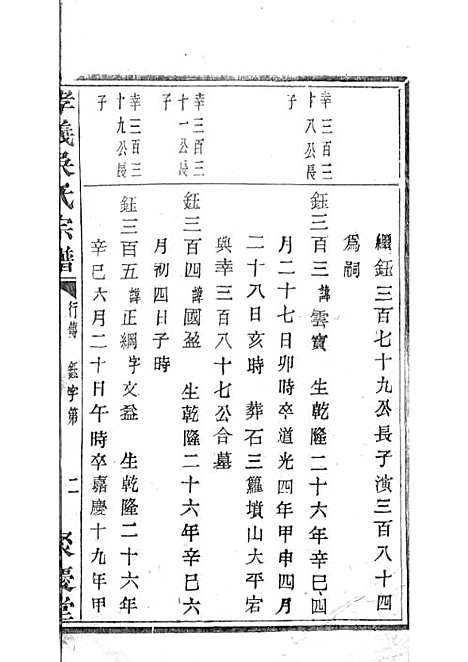 繼鈺三百七十九公長子演三百八十四
為嗣
幸三百三
十八公長
子
鈺三百三諱雲寶 生乾隆二十六年辛巳四
月二十七日卯時卒道光四年甲申四月
二十八日亥時 葬石三籮墳山大平宕
與幸三百八十七公合墓
幸三百三
十一公長
子
鈺三百四諱國盈 生乾隆二十六年辛巳六
月初四日子時
幸三百三
十九公長
子
鈺三百五諱正綱字文益 生乾隆二十六年
辛巳六月二十日午時卒嘉慶十九年甲
孝義吳氏宗譜
行傳 鈺字第 二
聚慶堂